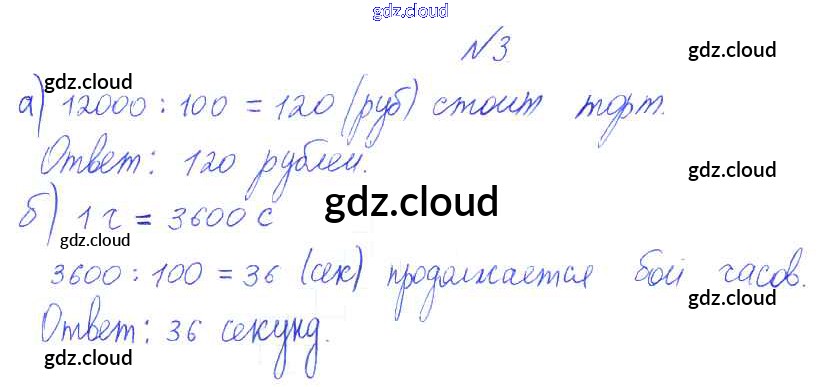 gdz.cloud
№3
gdz.cloud
gdz.cloud
а) 12000 : 100 = 120 (руб) стоит торт.
gdz.cloud
Ответ: 120 рублей.
gdz.cloud
gdz.cloud
б) 1 ч = 3600 с
gdz.cloud
3600 : 100 = 36 (сек) продолжается бой часов.
gdz.cloud
Ответ: 36 секунд.
gdz.cloud